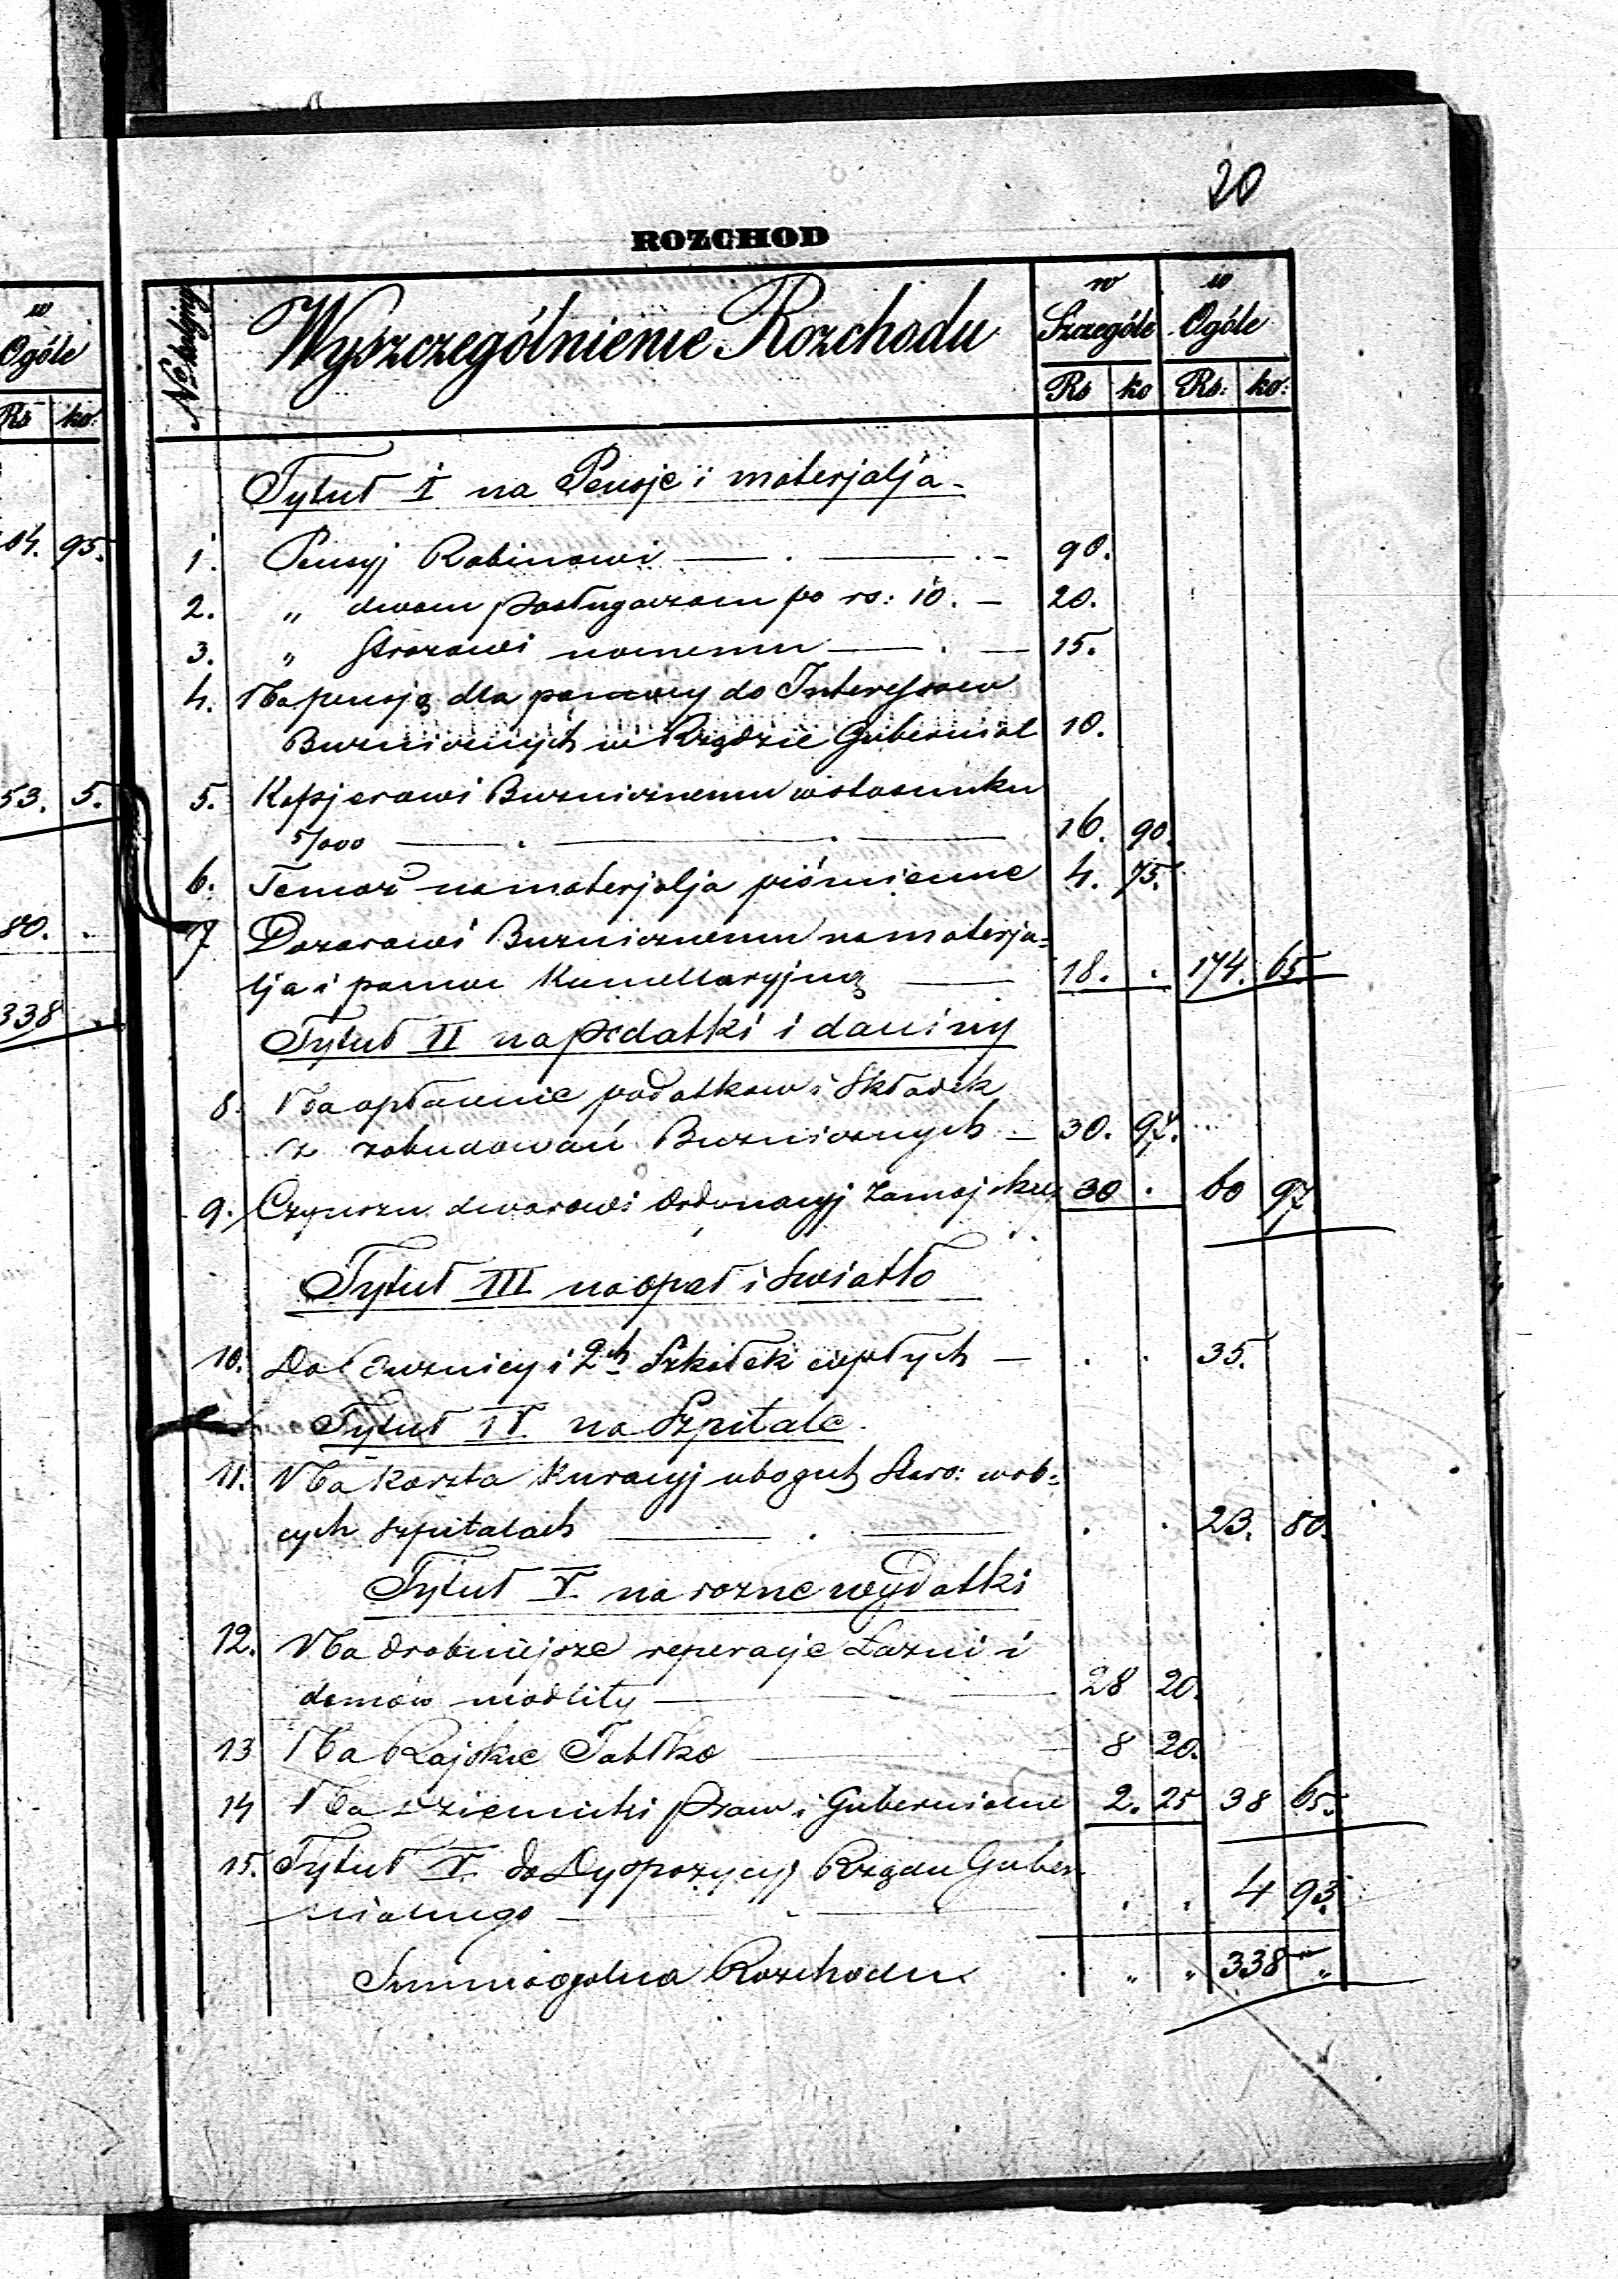 20
ROZCHOD
w
Ogóle
Rs ko:
04. 95.
53. 5.
80. .
338 .
No kolejny
Wyszczególnienie Rozchodu
w Szczególe
w Ogóle
Rs ko Rs: ko:
Tytuł I na Pensje i materjalja
1. Pensyj Rabinowi 90.
2. " dwom posługaczom po rs: 10. 20.
3. " Strozowi nocnemu 15.
4. Na pensją dla pomocy do Interessow
Buznicznych w Rządzie Gubernial 10.
5. Kassjerowi Buznicznemu w stosunku
5/000 16. 90.
6. Temoż na materjalja piśmienne 4. 75.
7 Dozorowi Buznicznemu na materja-
lja i pomoc Kancellaryjną 18. . 174. 65
Tytuł II na podatki i daniny
8. Na opłacenie podatkow i Składek
z zabudowań Buznicznych 30. 97.
9. Czynszu dworowi Ordynacyj Zamojskiej 30 . 60 97
Tytuł III na opał i Swiatło
10. Do Buznicy i 2ch Szkołek ciepłych . . 35.
Tytuł IV na Szpitale
11. Na koszta Kuracyj ubogich Staro: w ob-
cych szpitalach . . 23. 80.
Tytuł V. na rozne wydatki
12. Na drobniejsze reperacje Łazni i
domów modlitwy 28 20.
13 Na Rajskie Jabłko 8 20.
14 Na dzienniki Praw i Gubernialne 2. 25 38 65.
15. Tytuł V. do Dyspozycyj Rządu Guber-
nialnego . . 4 93.
Summa ogolna Rozchodu " " 338 "